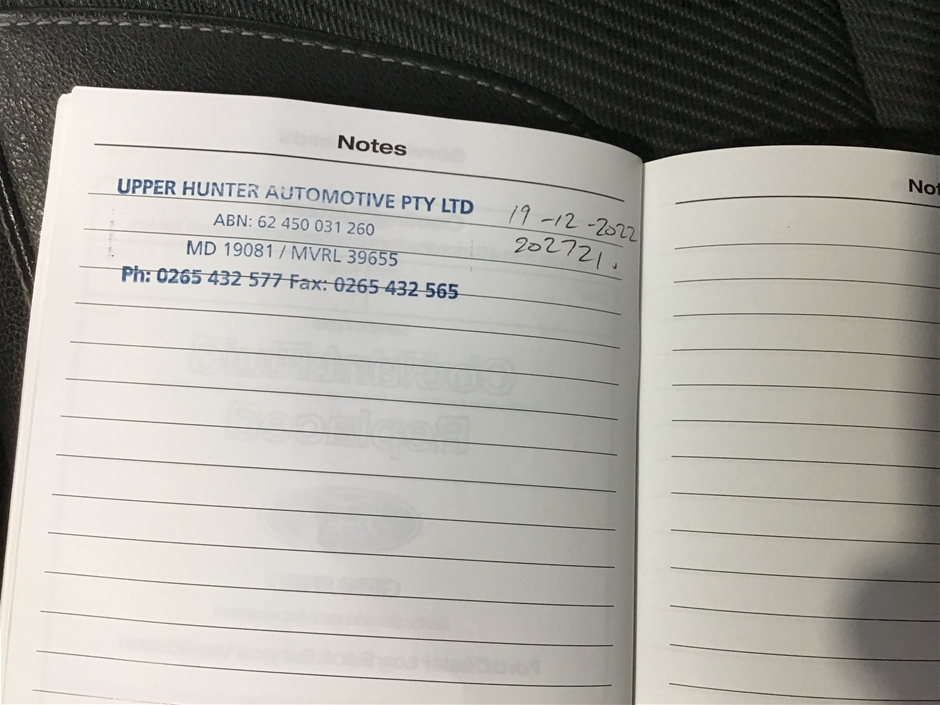 Notes
UPPER HUNTER AUTOMOTIVE PTY LTD
ABN: 62 450 031 260
MD 19081 / MVRL 39655
Ph: 0265 432 577 Fax: 0265 432 565
19-12-2022
202721.
Not